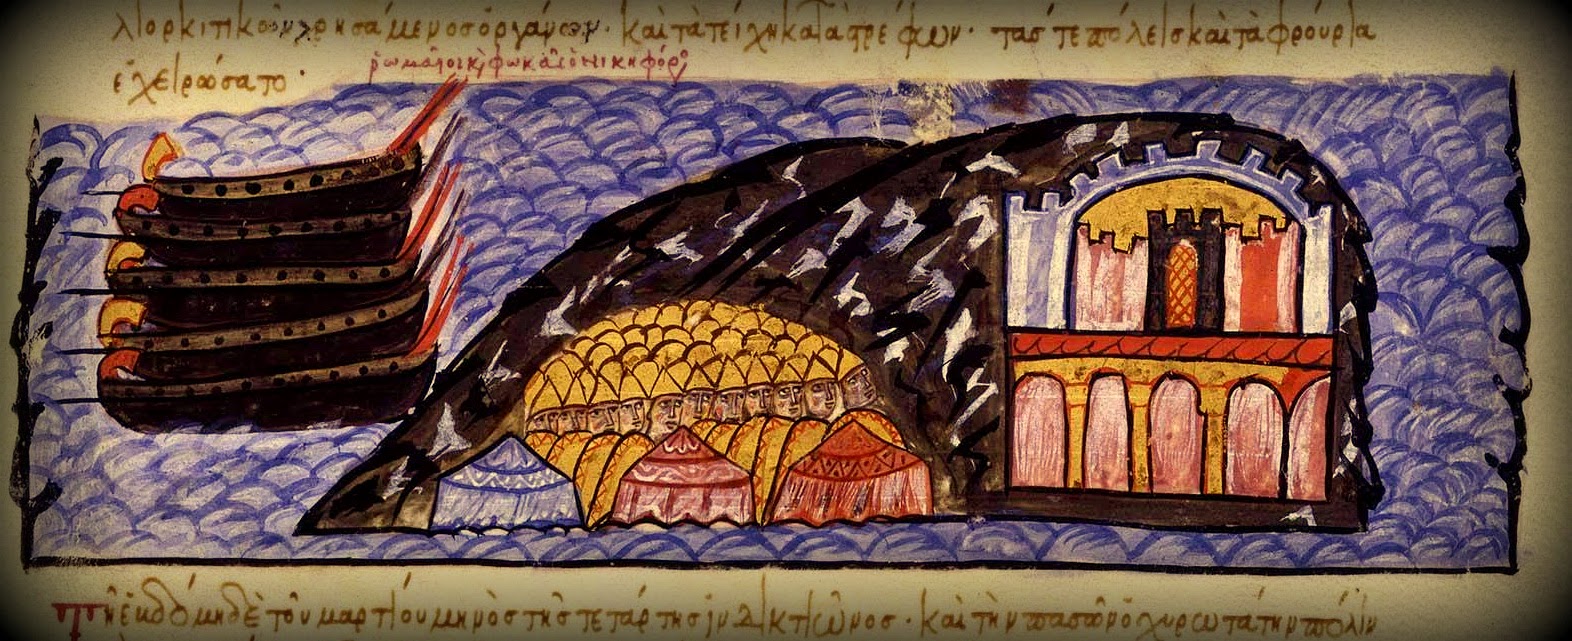 λιορκιτικοῖς χρησάμενος ὀργάνοις· καὶ τὰ τείχη καταστρέφων· τάς τε πόλεις καὶ τὰ φρούρια
ἐχειρώσατο·
ῥωμαῖοι κ φωκᾶς ὁ νικηφόρος
Τῇ ἑβδόμῃ δὲ τοῦ μαρτίου μηνὸς τῆς τετάρτης ἰνδικτιῶνος· καὶ τὴν πασῶν ὀχυρωτάτην πόλιν